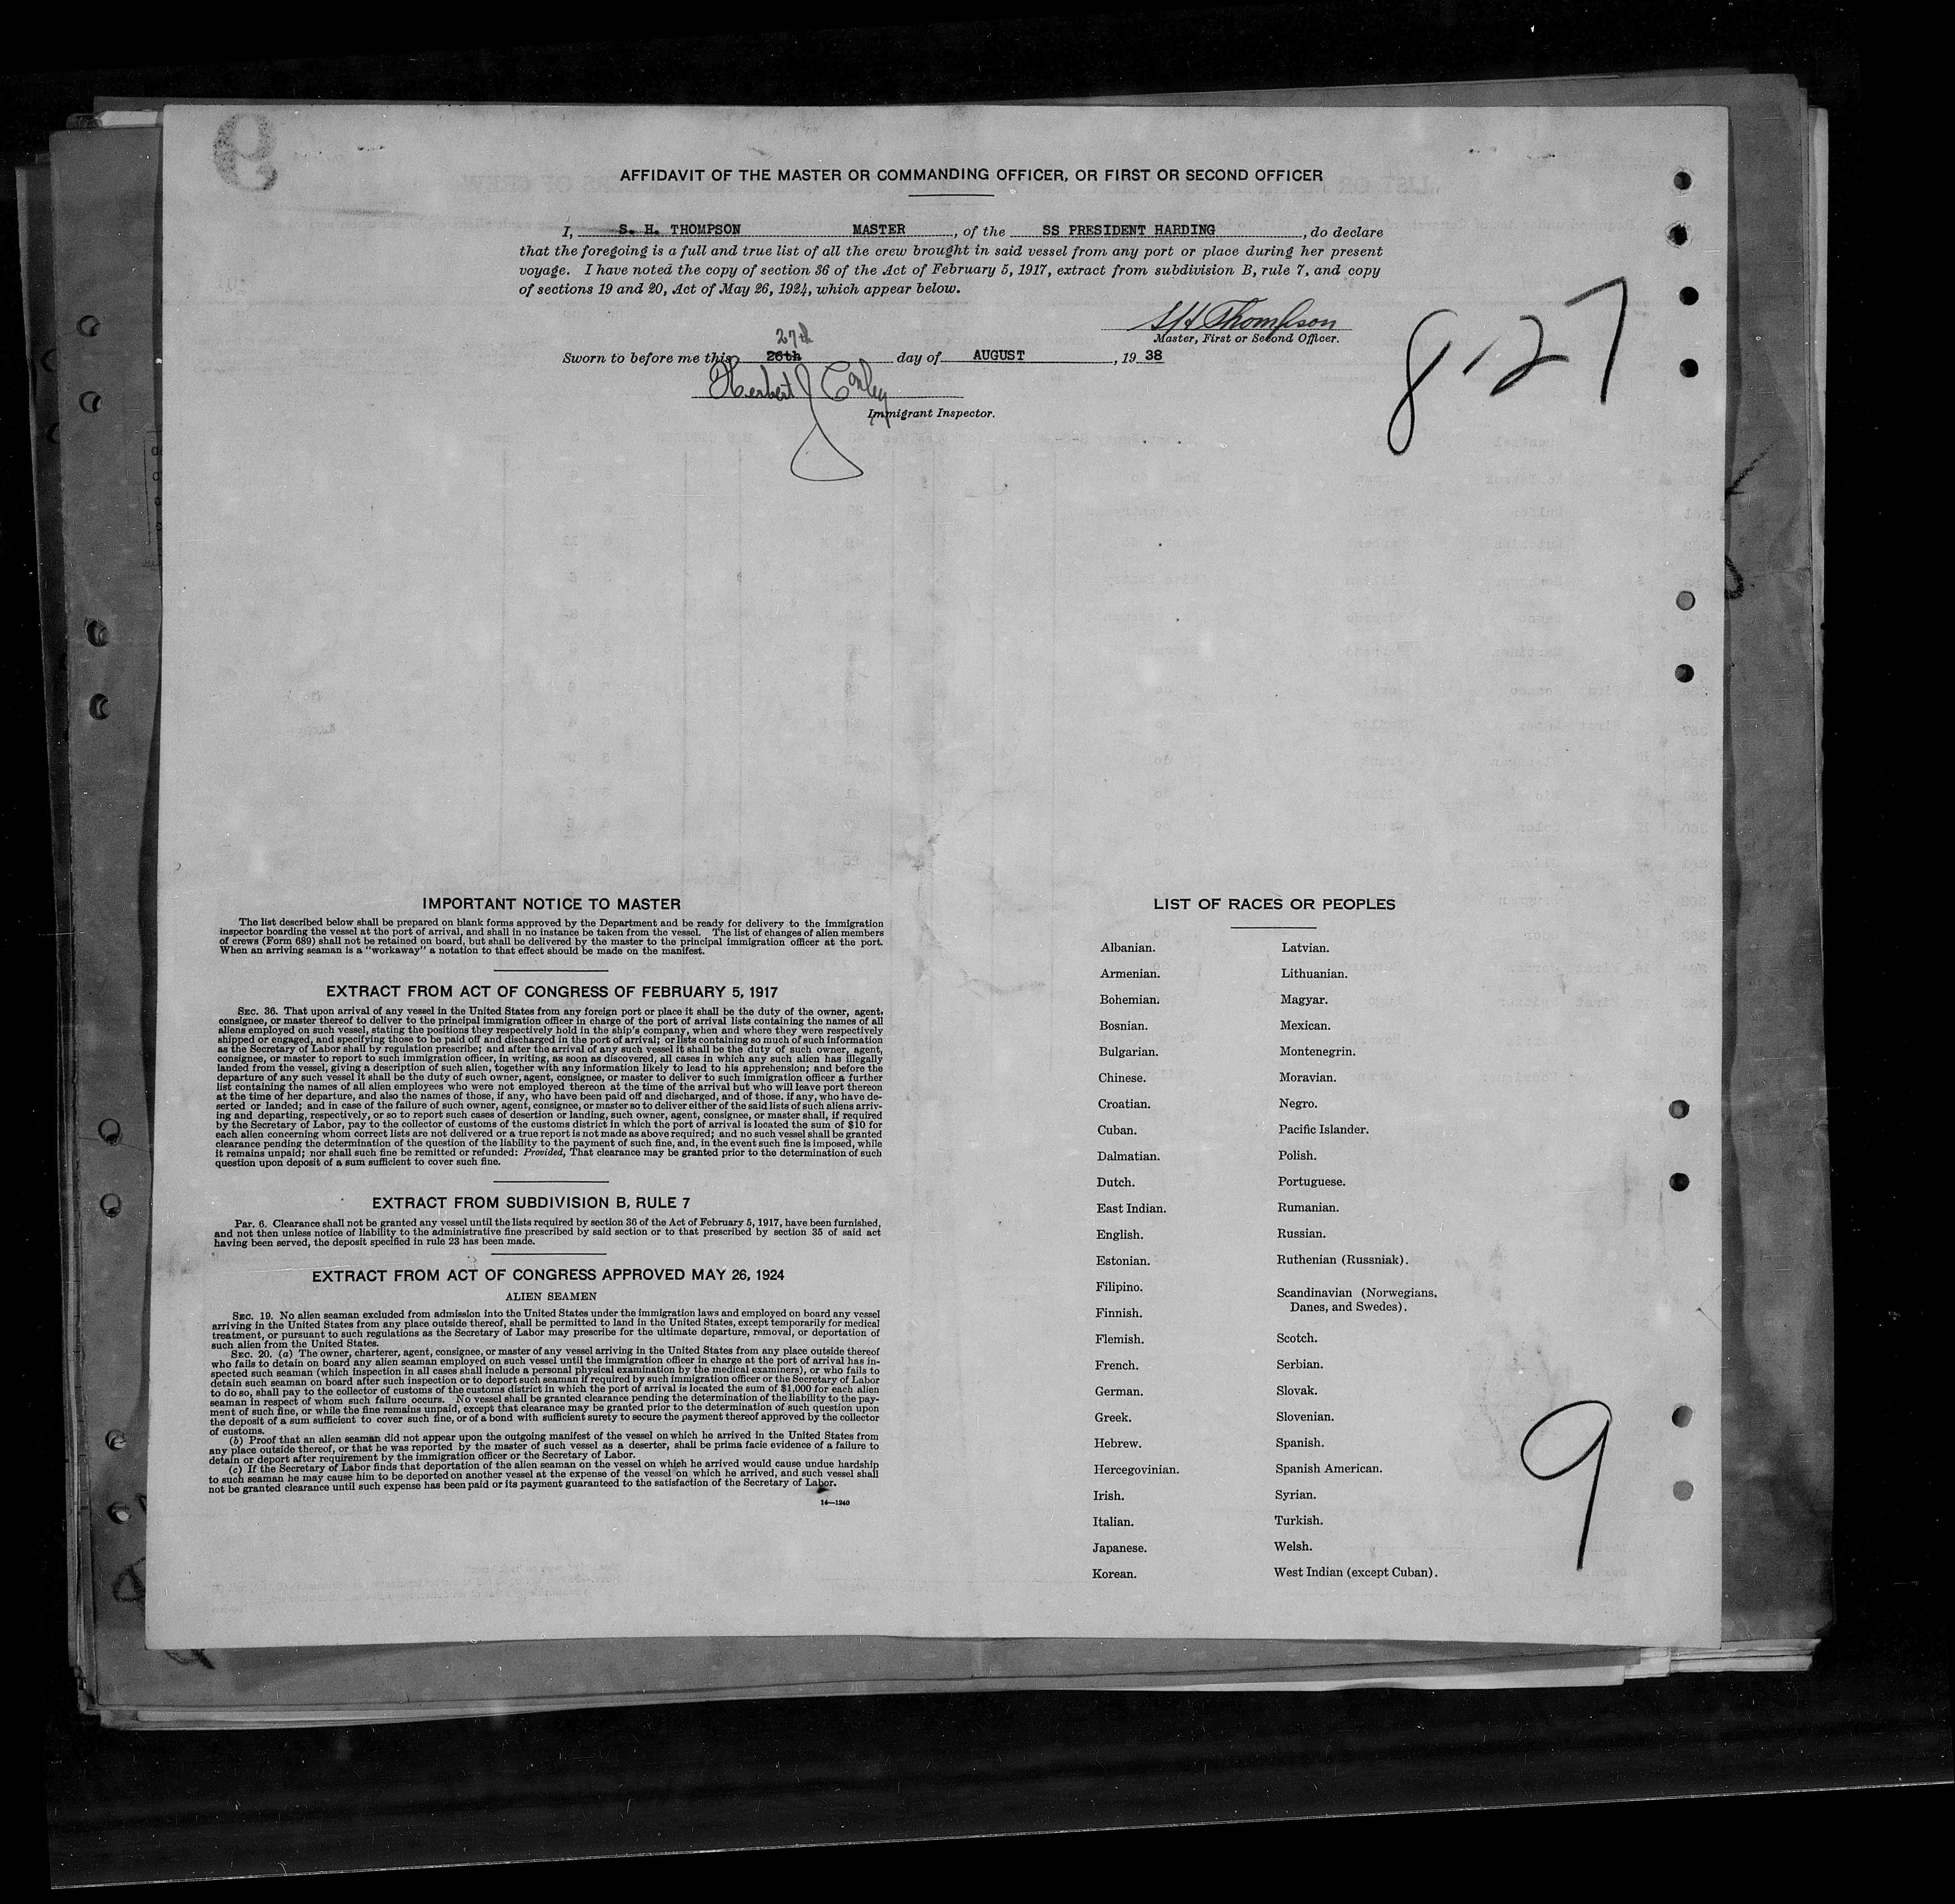 AFFIDAVIT OF THE MASTER OR COMMANDING OFFICER, OR FIRST OR SECOND OFFICER
I, S. H. THOMPSON MASTER, of the SS PRESIDENT HARDING, do declare
that the foregoing is a full and true list of all the crew brought in said vessel from any port or place during her present
voyage. I have noted the copy of section 36 of the Act of February 5, 1917, extract from subdivision B, rule 7, and copy
of sections 19 and 20, Act of May 26, 1924, which appear below.
SH Thompson
Master, First or Second Officer.
27th
Sworn to before me this 26th day of AUGUST, 1938
Herbert J Conley
Immigrant Inspector.
8-27
IMPORTANT NOTICE TO MASTER
The list described below shall be prepared on blank forms approved by the Department and be ready for delivery to the immigration
inspector boarding the vessel at the port of arrival, and shall in no instance be taken from the vessel. The list of changes of alien members
of crews (Form 689) shall not be retained on board, but shall be delivered by the master to the principal immigration officer at the port.
When an arriving seaman is a "workaway" a notation to that effect should be made on the manifest.
EXTRACT FROM ACT OF CONGRESS OF FEBRUARY 5, 1917
SEC. 36. That upon arrival of any vessel in the United States from any foreign port or place it shall be the duty of the owner, agent,
consignee, or master thereof to deliver to the principal immigration officer in charge of the port of arrival lists containing the names of all
aliens employed on such vessel, stating the positions they respectively hold in the ship's company, when and where they were respectively
shipped or engaged, and specifying those to be paid off and discharged in the port of arrival; or lists containing so much of such information
as the Secretary of Labor shall by regulation prescribe; and after the arrival of any such vessel it shall be the duty of such owner, agent,
consignee, or master to report to such immigration officer, in writing, as soon as discovered, all cases in which any such alien has illegally
landed from the vessel, giving a description of such alien, together with any information likely to lead to his apprehension; and before the
departure of any such vessel it shall be the duty of such owner, agent, consignee, or master to deliver to such immigration officer a further
list containing the names of all alien employees who were not employed thereon at the time of the arrival but who will leave port thereon
at the time of her departure, and also the names of those, if any, who have been paid off and discharged, and of those, if any, who have de-
serted or landed; and in case of the failure of such owner, agent, consignee, or master so to deliver either of the said lists of such aliens arriv-
ing and departing, respectively, or so to report such cases of desertion or landing, such owner, agent, consignee, or master shall, if required
by the Secretary of Labor, pay to the collector of customs of the customs district in which the port of arrival is located the sum of $10 for
each alien concerning whom correct lists are not delivered or a true report is not made as above required; and no such vessel shall be granted
clearance pending the determination of the question of the liability to the payment of such fine, and, in the event such fine is imposed, while
it remains unpaid; nor shall such fine be remitted or refunded: Provided, That clearance may be granted prior to the determination of such
question upon deposit of a sum sufficient to cover such fine.
EXTRACT FROM SUBDIVISION B, RULE 7
Par. 6. Clearance shall not be granted any vessel until the lists required by section 36 of the Act of February 5, 1917, have been furnished,
and not then unless notice of liability to the administrative fine prescribed by said section or to that prescribed by section 35 of said act
having been served, the deposit specified in rule 23 has been made.
EXTRACT FROM ACT OF CONGRESS APPROVED MAY 26, 1924
ALIEN SEAMEN
SEC. 19. No alien seaman excluded from admission into the United States under the immigration laws and employed on board any vessel
arriving in the United States from any place outside thereof, shall be permitted to land in the United States, except temporarily for medical
treatment, or pursuant to such regulations as the Secretary of Labor may prescribe for the ultimate departure, removal, or deportation of
such alien from the United States.
SEC. 20. (a) The owner, charterer, agent, consignee, or master of any vessel arriving in the United States from any place outside thereof
who fails to detain on board any alien seaman employed on such vessel until the immigration officer in charge at the port of arrival has in-
spected such seaman (which inspection in all cases shall include a personal physical examination by the medical examiners), or who fails to
detain such seaman on board after such inspection or to deport such seaman if required by such immigration officer or the Secretary of Labor
to do so, shall pay to the collector of customs of the customs district in which the port of arrival is located the sum of $1,000 for each alien
seaman in respect of whom such failure occurs. No vessel shall be granted clearance pending the determination of the liability to the pay-
ment of such fine, or while the fine remains unpaid, except that clearance may be granted prior to the determination of such question upon
the deposit of a sum sufficient to cover such fine, or of a bond with sufficient surety to secure the payment thereof approved by the collector
of customs.
(b) Proof that an alien seaman did not appear upon the outgoing manifest of the vessel on which he arrived in the United States from
any place outside thereof, or that he was reported by the master of such vessel as a deserter, shall be prima facie evidence of a failure to
detain or deport after requirement by the immigration officer or the Secretary of Labor.
(c) If the Secretary of Labor finds that deportation of the alien seaman on the vessel on which he arrived would cause undue hardship
to such seaman he may cause him to be deported on another vessel at the expense of the vessel on which he arrived, and such vessel shall
not be granted clearance until such expense has been paid or its payment guaranteed to the satisfaction of the Secretary of Labor.
14—1240
LIST OF RACES OR PEOPLES
Albanian.
Armenian.
Bohemian.
Bosnian.
Bulgarian.
Chinese.
Croatian.
Cuban.
Dalmatian.
Dutch.
East Indian.
English.
Estonian.
Filipino.
Finnish.
Flemish.
French.
German.
Greek.
Hebrew.
Hercegovinian.
Irish.
Italian.
Japanese.
Korean.
Latvian.
Lithuanian.
Magyar.
Mexican.
Montenegrin.
Moravian.
Negro.
Pacific Islander.
Polish.
Portuguese.
Rumanian.
Russian.
Ruthenian (Russniak).
Scandinavian (Norwegians,
Danes, and Swedes).
Scotch.
Serbian.
Slovak.
Slovenian.
Spanish.
Spanish American.
Syrian.
Turkish.
Welsh.
West Indian (except Cuban).
9